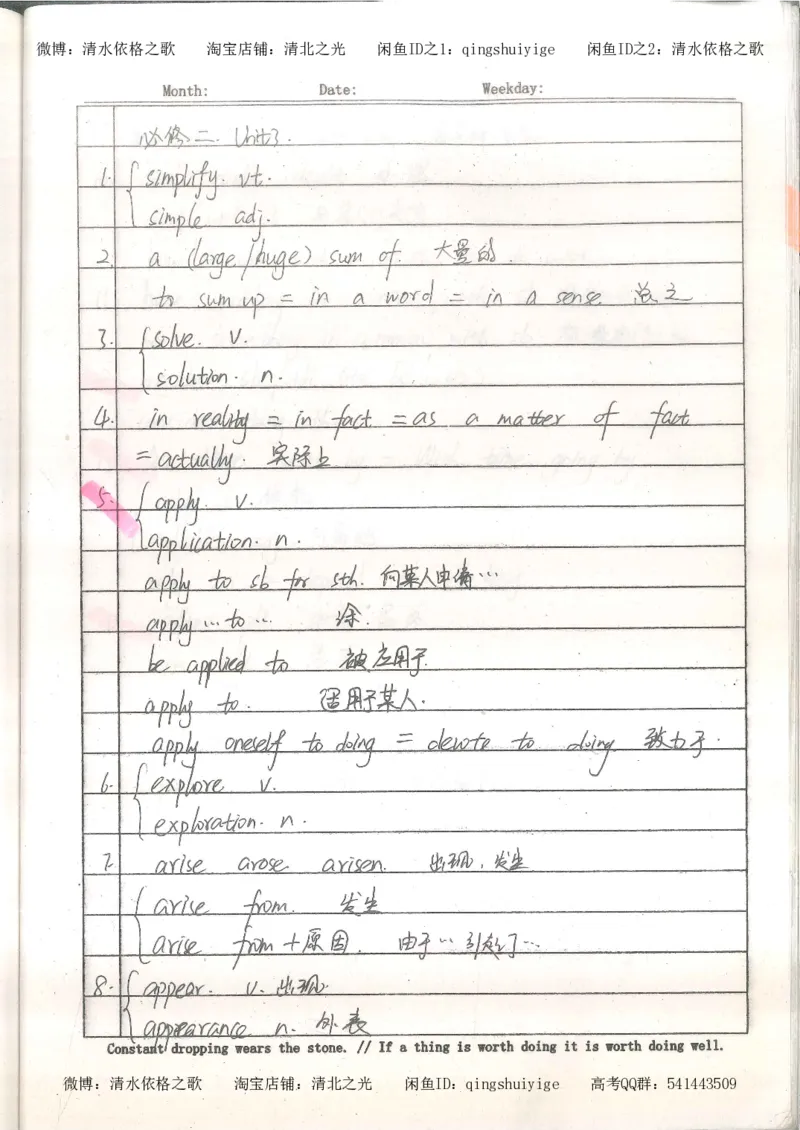 微博：清水依格之歌 淘宝店铺：清北之光 闲鱼ID之1：qingshuiyige 闲鱼ID之2：清水依格之歌
Month: Date: Weekday:
必修二. Unit3.
1. simplify. vt.
simple adj.
2. a (large/huge) sum of. 大量的.
to sum up = in a word = in a sense. 总之
3. solve. v.
solution. n.
4. in reality = in fact = as a matter of fact
= actually. 实际上
5. apply. v.
application. n.
apply to sb for sth. 向某人申请…
apply … to … 涂.
be applied to 被应用于.
apply to. 适用于某人.
apply oneself to doing = devote to doing 致力于.
6. explore v.
exploration. n.
7. arise arose arisen. 出现, 发生
arise from. 发生
arise from + 原因. 由于…引起了…
8. appear. v. 出现.
appearance n. 外表
Constant dropping wears the stone. // If a thing is worth doing it is worth doing well.
微博：清水依格之歌 淘宝店铺：清北之光 闲鱼ID：qingshuiyige 高考QQ群：541443509